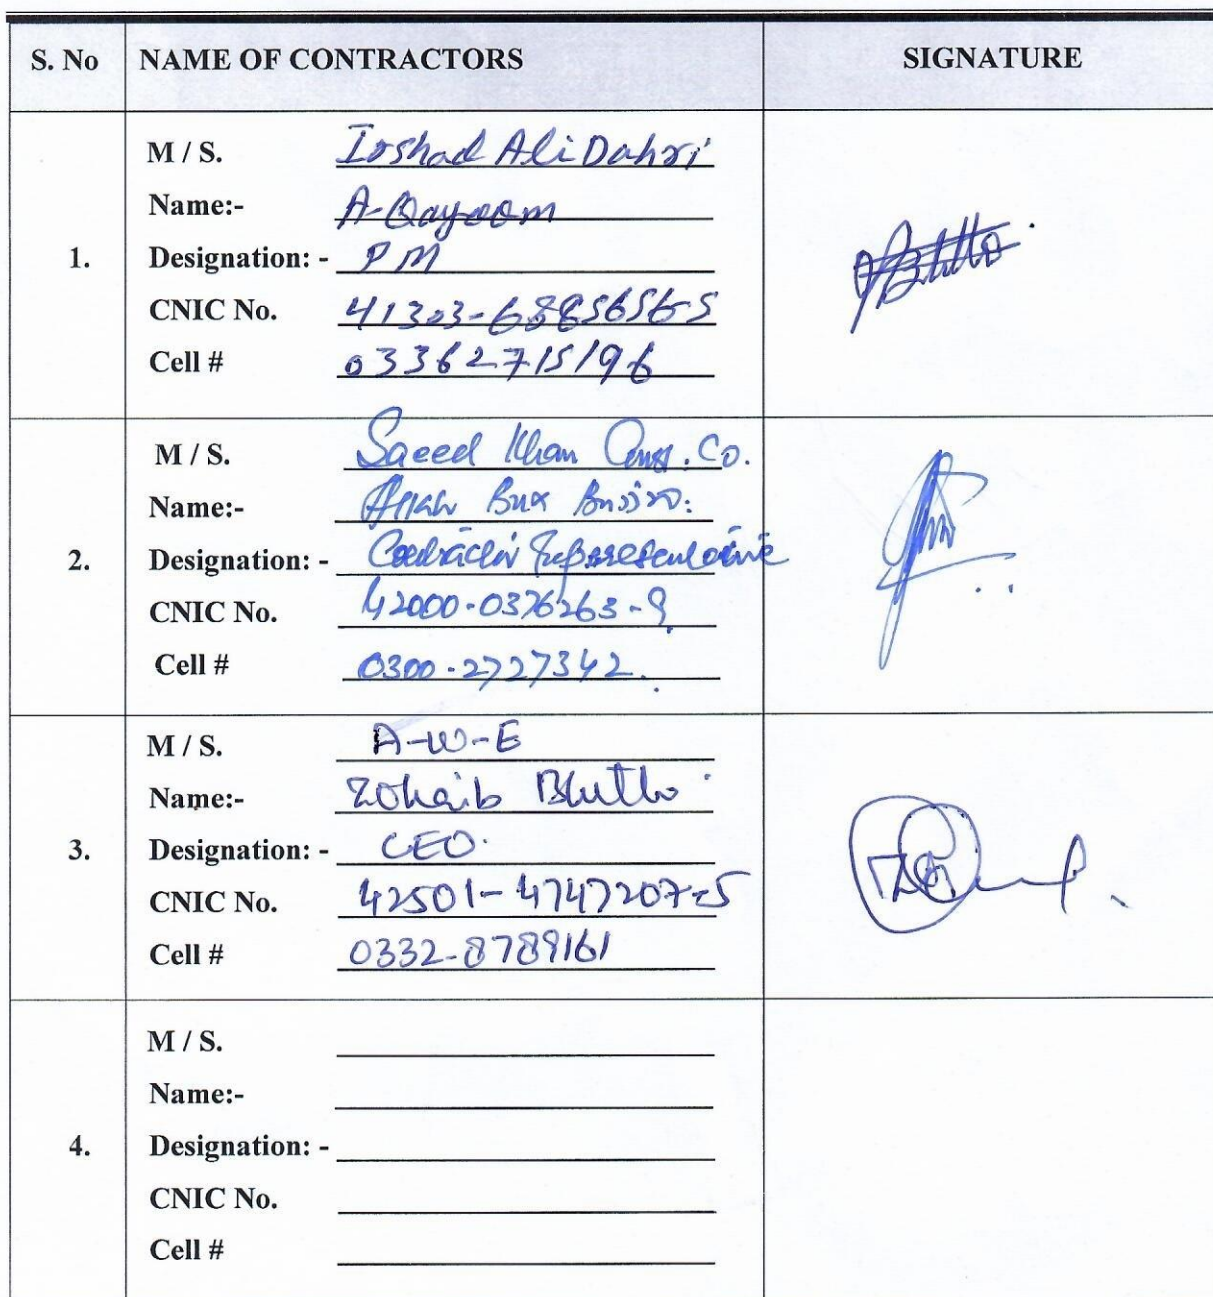 S. No NAME OF CONTRACTORS SIGNATURE
1.
M / S. Irshad Ali Dahri
Name:- A-Qayoom
Designation: - PM
CNIC No. 41303-6885656-5
Cell # 03362715196
2.
M / S. Saeed Khan Const. Co.
Name:- Allah Bux
Designation: - Contractor Representative
CNIC No. 42000-0376263-9
Cell # 0300-2727342.
3.
M / S. A-W-E
Name:- Zohaib Bhutto
Designation: - CEO.
CNIC No. 42501-4747207-5
Cell # 0332-8789161
4.
M / S.
Name:-
Designation: -
CNIC No.
Cell #